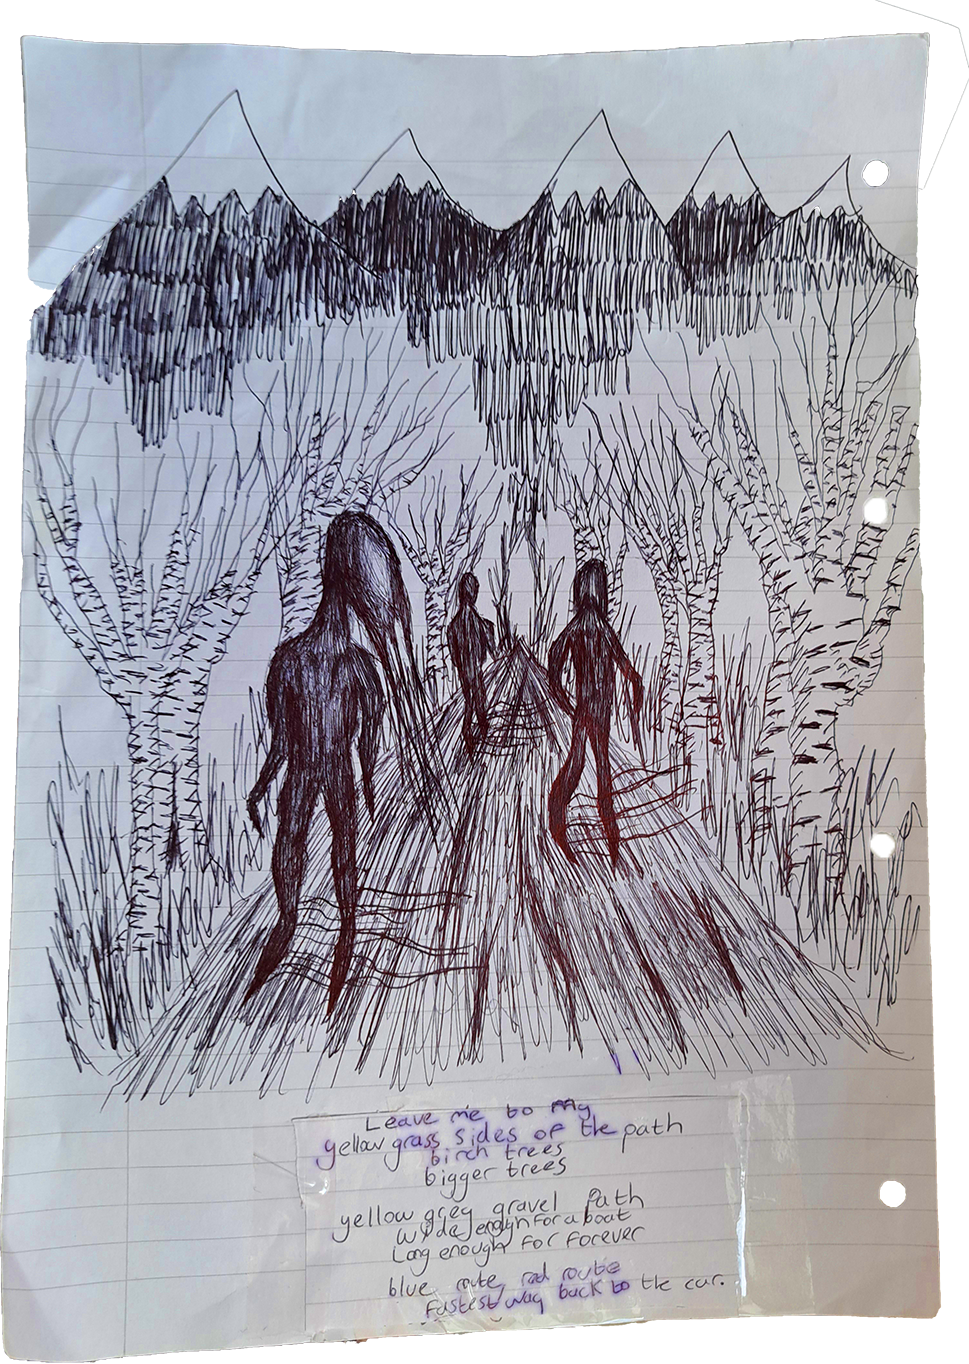 Leave me to my
yellow grass sides of the path
birch trees
bigger trees
yellow grey gravel Path
wide enough for a boat
Long enough for forever
blue route, red route
fastest way back to the car.